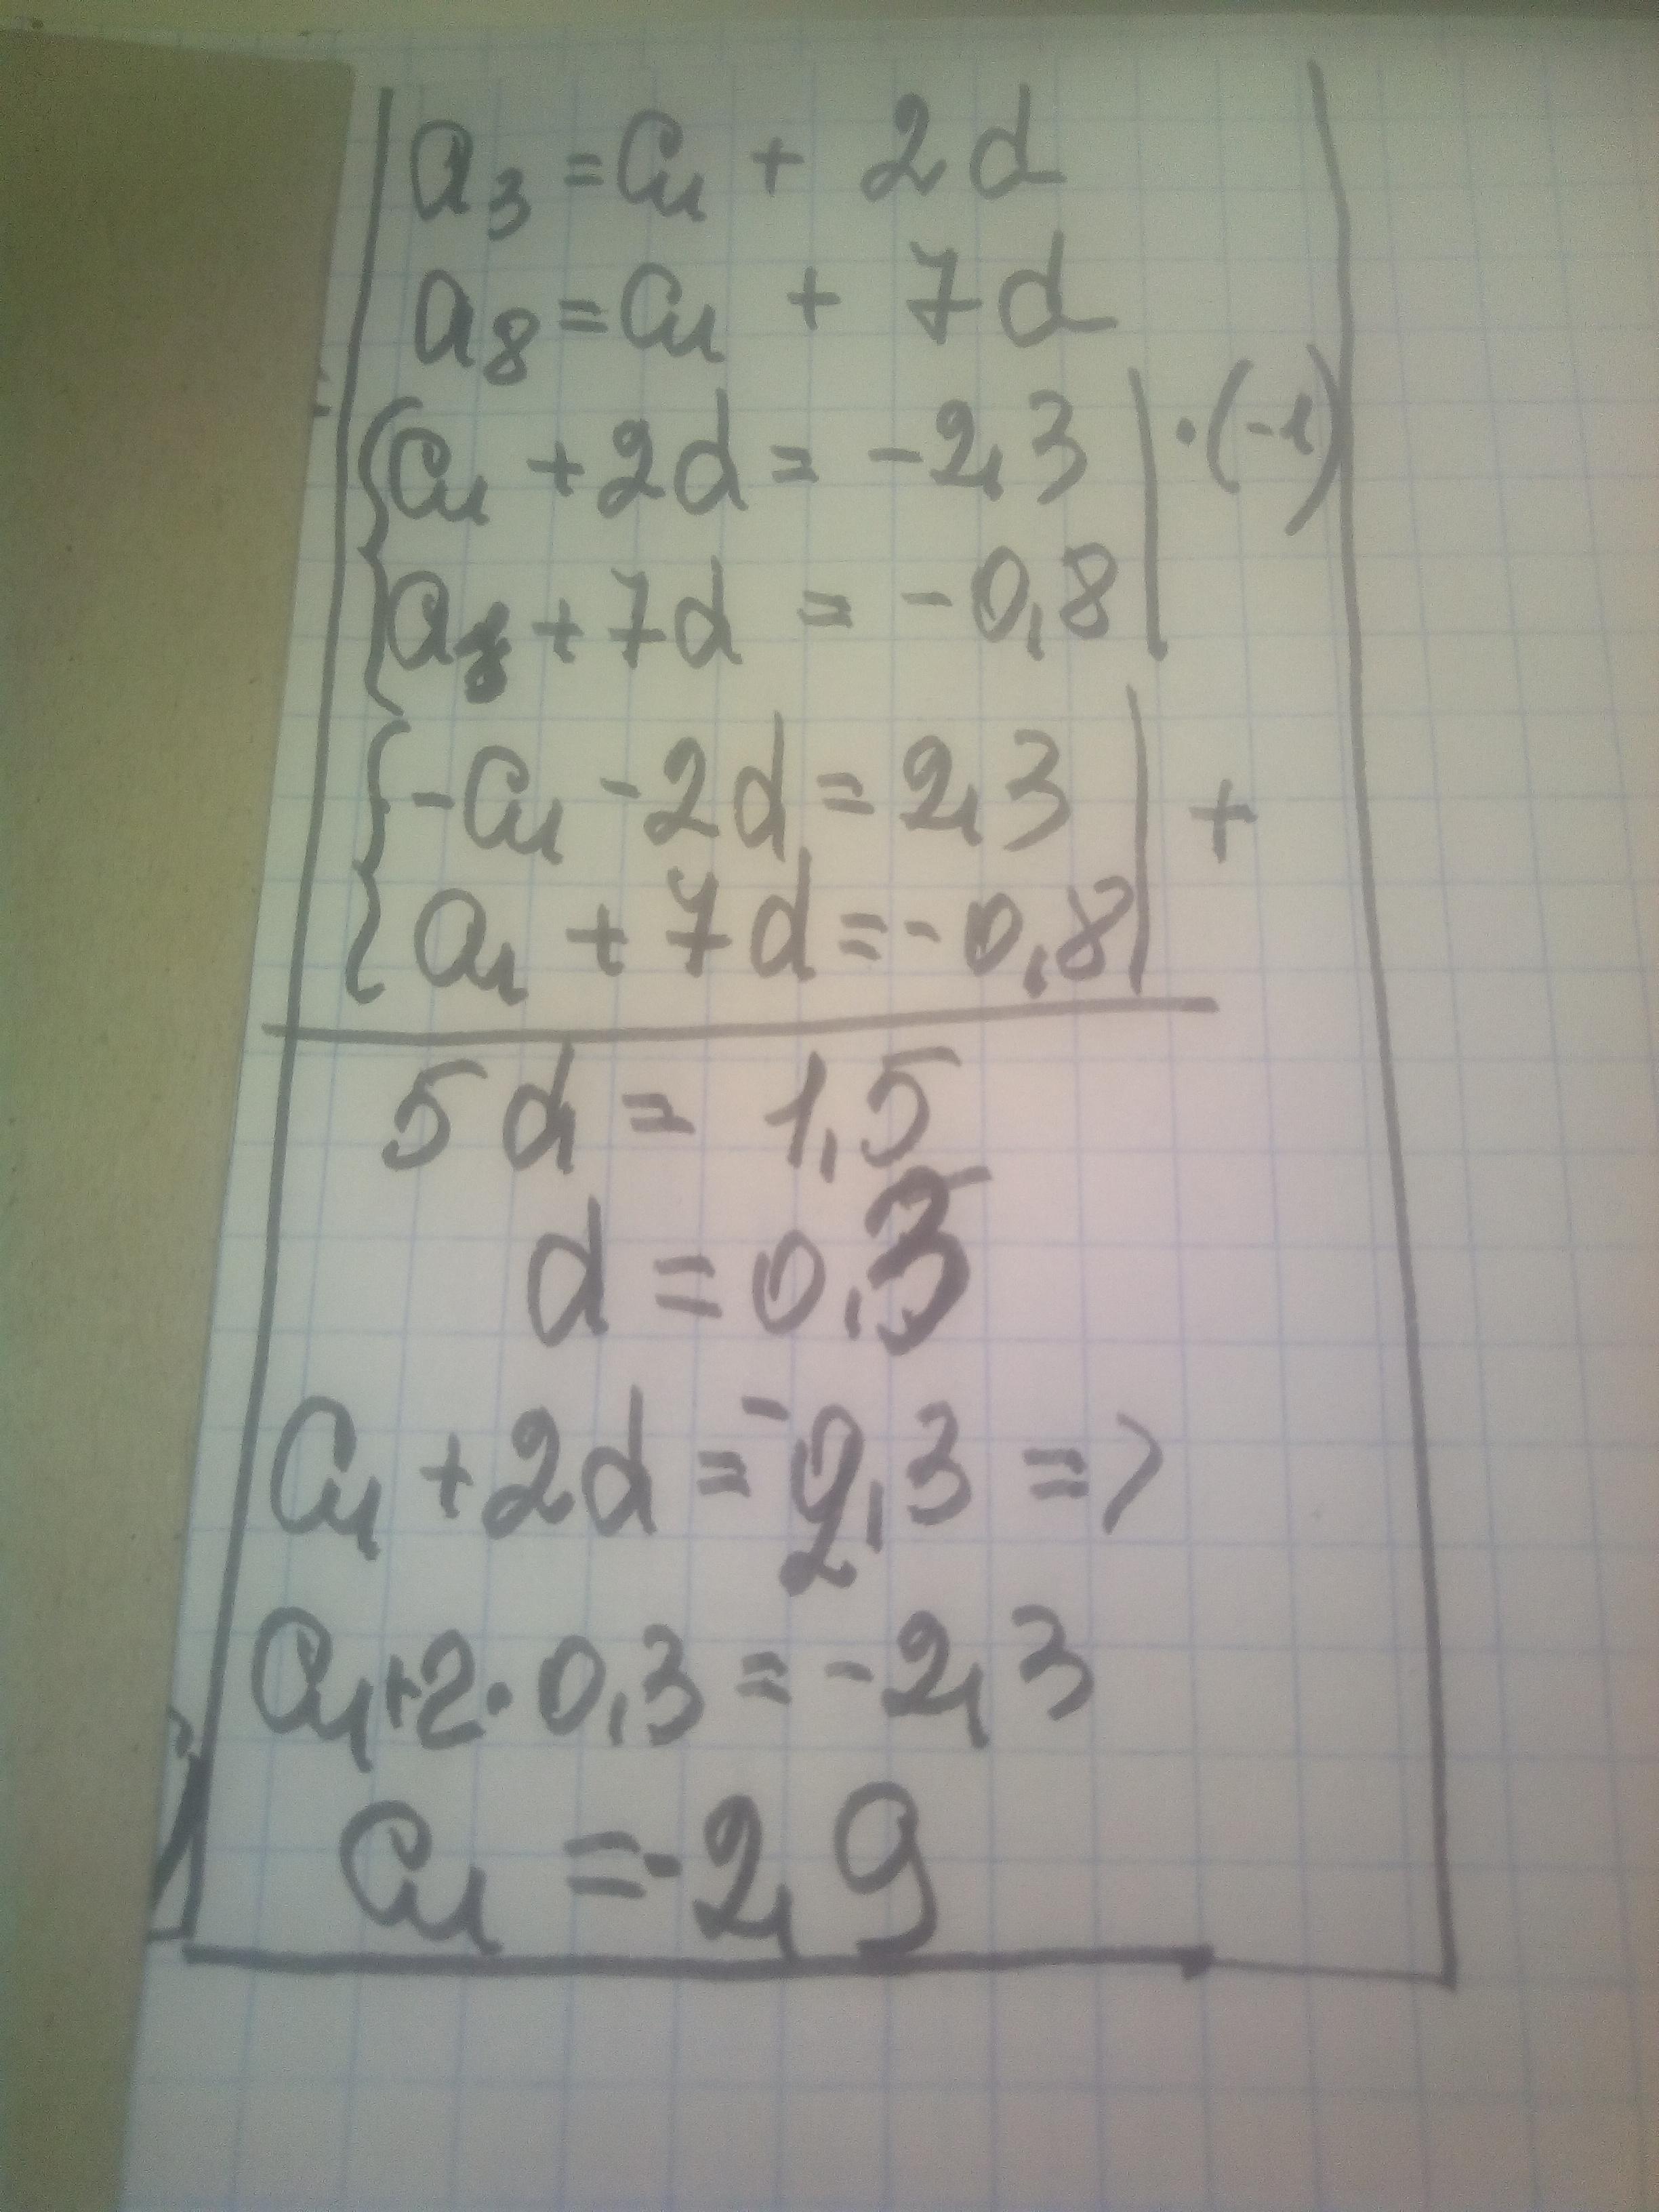 a₃ = a₁ + 2d
a₈ = a₁ + 7d
{ a₁ + 2d = -2,3 | · (-1)
{ a₁ + 7d = -0,8 |
{ -a₁ - 2d = 2,3 | +
{ a₁ + 7d = -0,8 |
5d = 1,5
d = 0,3
a₁ + 2d = -2,3 =>
a₁ + 2 · 0,3 = -2,3
a₁ = -2,9